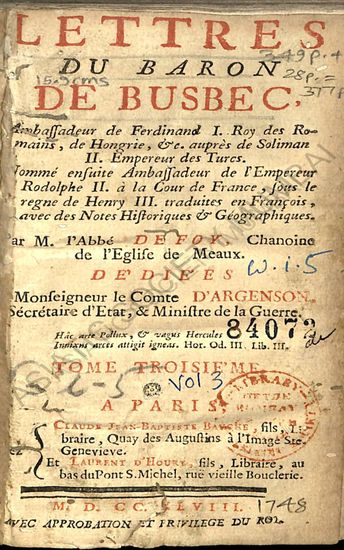 LETTRES
DU BARON
DE BUSBEC,
Ambassadeur de Ferdinand I. Roy des Ro-
mains, de Hongrie, &c. auprès de Soliman
II. Empereur des Turcs.
Nommé ensuite Ambassadeur de l'Empereur
Rodolphe II. à la Cour de France, sous le
regne de Henry III. traduites en François,
avec des Notes Historiques & Géographiques.
ar M. l'Abbé DE FOY, Chanoine
de l'Eglise de Meaux.
DEDIÉES
Monseigneur le Comte D'ARGENSON,
Sécrétaire d'Etat, & Ministre de la Guerre.
Hâc arte Pollux, & vagus Hercules
Innixus arces attigit igneas. Hor. Od. III. Lib. III.
TOME TROISIE'ME.
A PARIS
CLAUDE JEAN-BAPTISTE BAUCHE, fils, Li-
braire, Quay des Augustins à l'Image Ste
Genevieve.
Et LAURENT D'HOURY, fils, Libraire, au
bas du Pont S. Michel, ruë vieille Bouclerie.
M. D. CC. XLVIII.
AVEC APPROBATION ET PRIVILEGE DU ROI.
349p.+
28p.=
377p
15.9cms
w.i.5
84072
vol 3
1748
LIBRARY